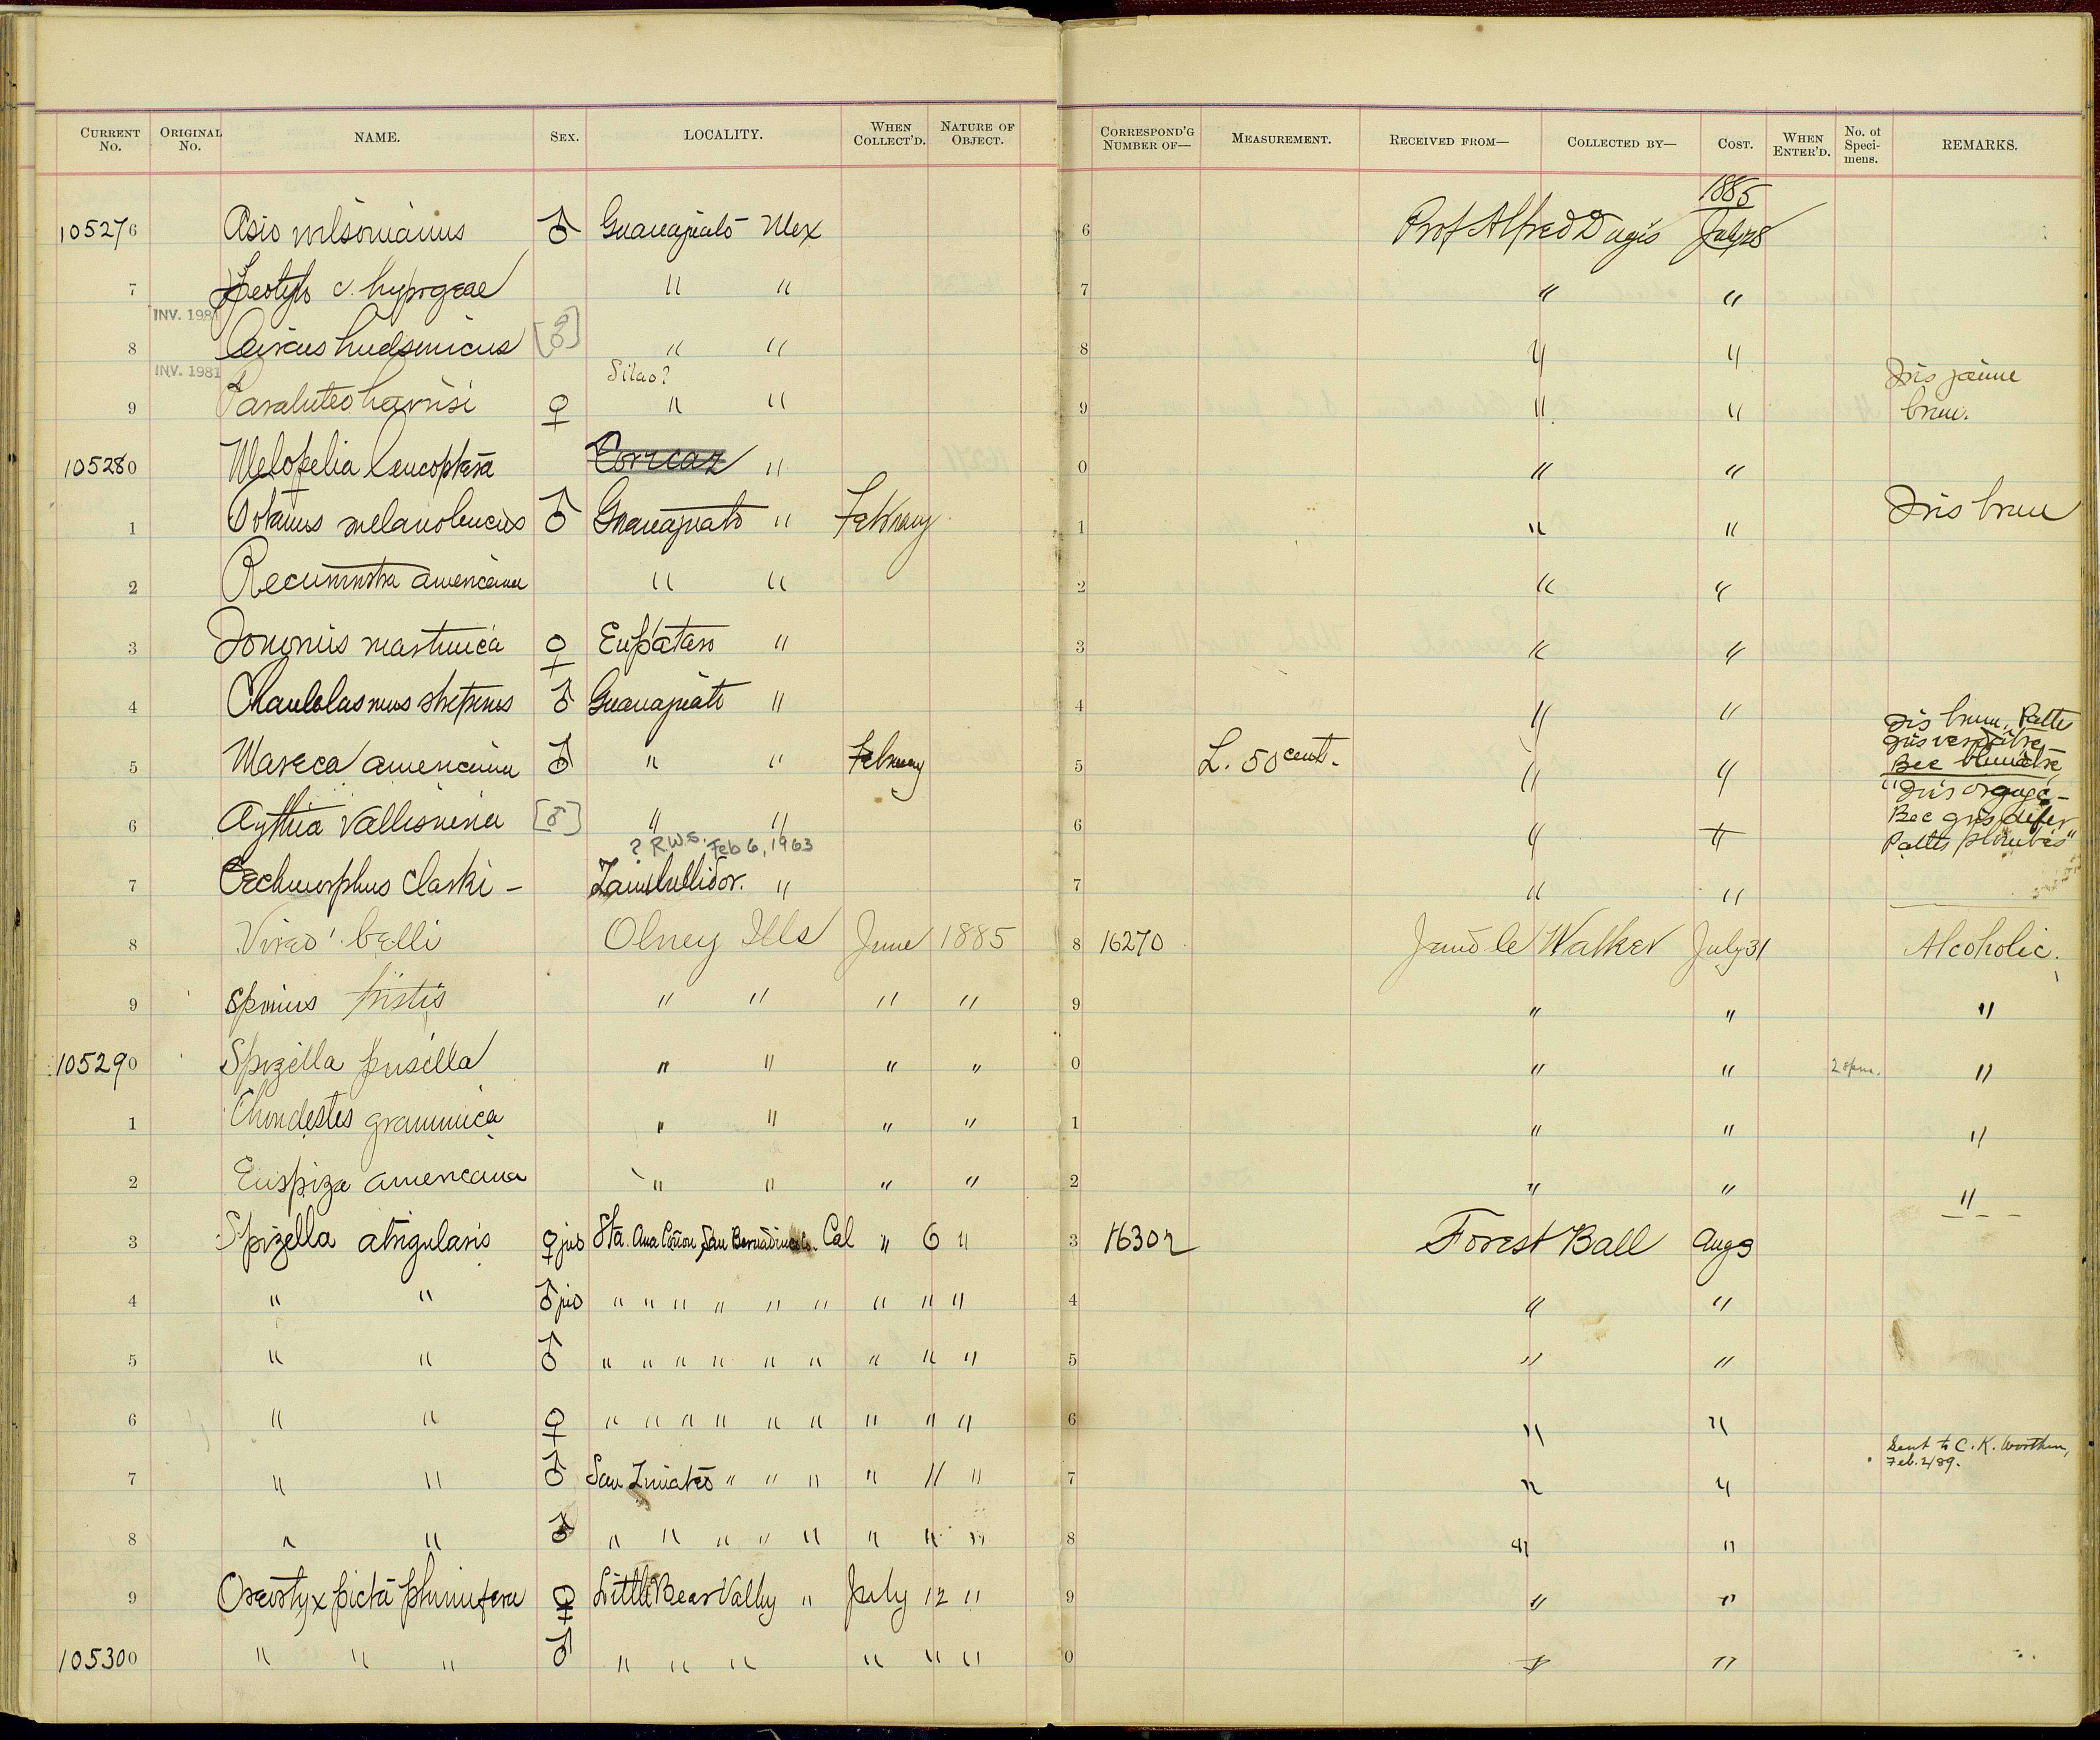 CURRENT No. ORIGINAL No. NAME. SEX. LOCALITY. WHEN COLLECT'D. NATURE OF OBJECT. CORRESPOND'G NUMBER OF— MEASUREMENT. RECEIVED FROM— COLLECTED BY— COST. WHEN ENTER'D. No. of Speci-mens. REMARKS.
1885
105276 Asio wilsonianus ♂ Guanajuato Mex 6 Prof Alfred Dugès July 28
7 c. hypogeae " " 7 " "
INV. 1981
8 Circus hudsonicus [♂] " " 8 " "
INV. 1981 Silao? Iris jaune
9 Parabuteo harrisi ♀ " " 9 " " brun.
105280 Melopelia leucoptera " 0 " "
1 Totanus melanoleucus ♂ Guanajuato " February 1 " " Iris brun
2 Recurvirostra americana " " 2 " "
3 Ionornis martinica ♀ Eupátaro " 3 " "
4 Chaulelasmus streperus ♂ Guanajuato " 4 " "
Iris brun, Pattes
gris verdâtre
5 Mareca americana ♂ " " February 5 L. 50 cent. " " Bec bleuâtre
"Iris orangé –
6 Aythia vallisneria [♂] " " 6 " " Bec gris de fer
? R.W.S. Feb 6, 1963 Pattes plombés"
7 Aechmorphus clarki – " 7 " "
8 Vireo belli Olney Ills June 1885 8 16270 Walker July 31 Alcoholic.
9 Spinus tristis " " " " 9 " " "
105290 Spizella pusilla " " " " 0 " " 2 spm. "
1 Chondestes grammica " " " " 1 " " "
2 Euspiza americana " " " " 2 " " "
3 Spizella atrigularis ♀ juv Sta. Ana Cañon, San Bernadino Co. Cal " 6 " 3 16302 Forest Ball Aug 3
4 " " ♂ juv " " " " " " " " " 4 " "
5 " " ♂ " " " " " " " " " 5 " "
6 " " ♀ " " " " " " " " " 6 " "
Sent to C. K. Worthen,
7 " " ♂ San " " " " 11 " 7 " " Feb. 2/89.
8 " " ♂ " " " " " " " " 8 " "
9 Oreortyx picta plumifera ♀ Little Bear Valley " July 12 " 9 " "
105300 " " " ♂ " " " " " " 0 " "